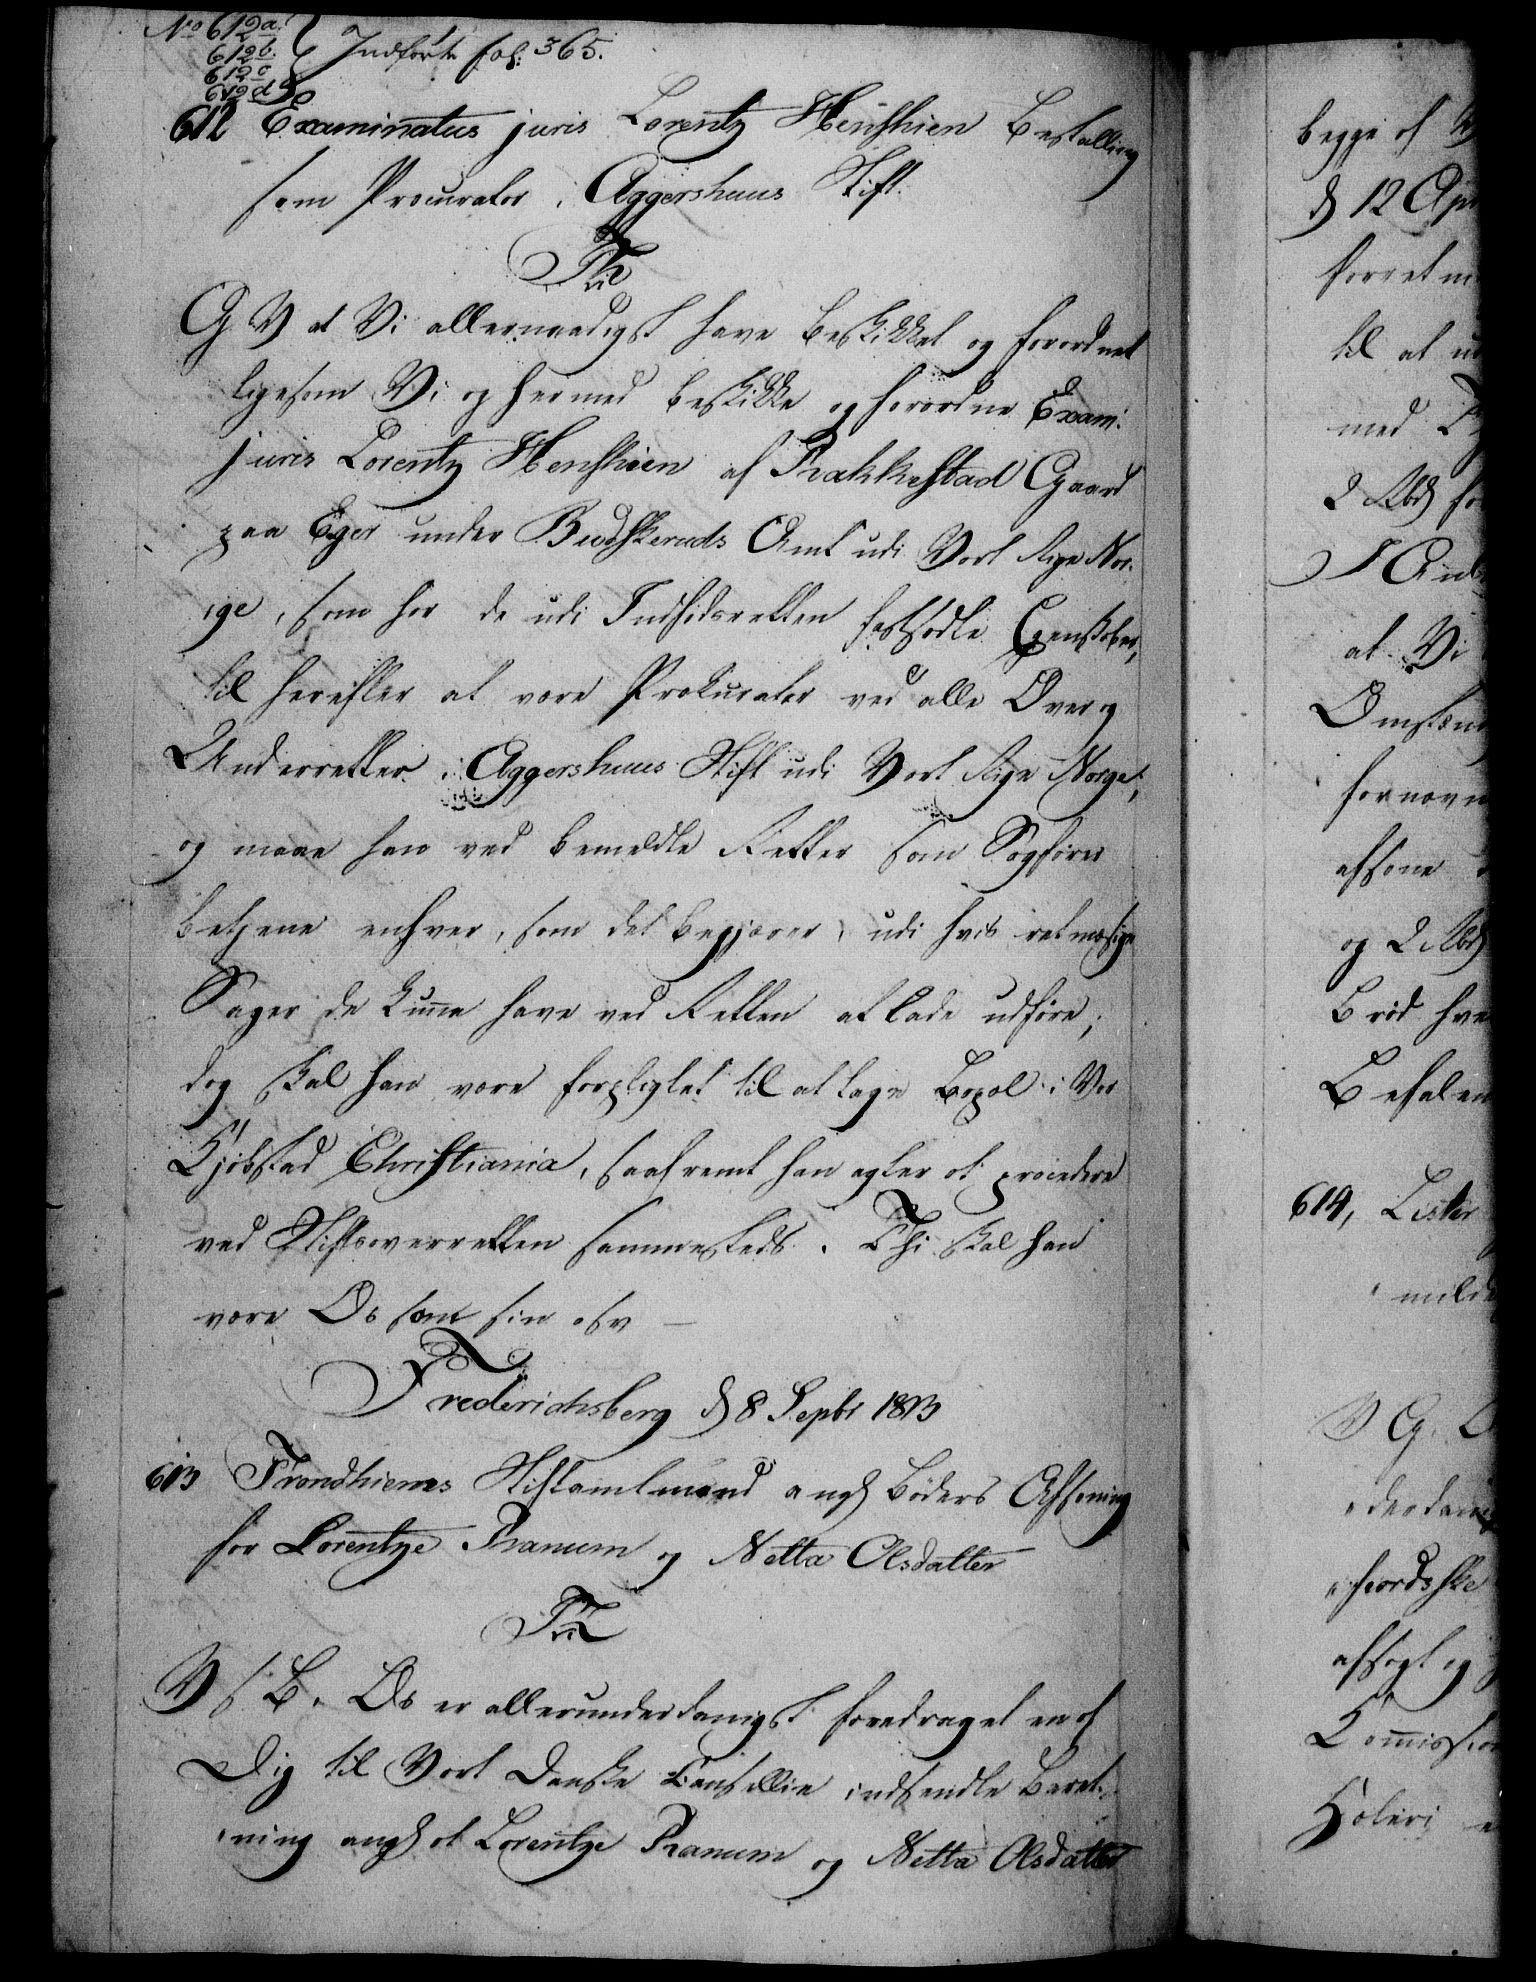 No 612a.
612b. Indført fol: 365.
612c
612d
612 Examinatus juris Lorentz Henschien Bestalling
som Procurator i Aggershuus Stift.
G V at Vi allernaadigst have beskikket og forordnet
ligesom Vi og hermed beskikke og forordne Exam:
juris Lorentz Henschien af Rakkestad Gaard
paa Eger under Budskeruds Amt udi Vort Rige Nor-
ige, som har de udi Indfødsretten fastsatte Egenskaber,
til herefter at være Prokurator ved alle Over og
Underretter i Aggershuus Stift udi Vort Rige Norge;
og maae han ved bemeldte Retter som Sagfører
betjene enhver, som det begjærer, udi hvis retmæsige
Sager de kunne have ved Retten at lade udføre;
dog skal han være forpligtet til at tage Bopæl i Vor
Kjøbstad Christiania, saafremt han agter at procedere
ved Stiftsoverretten sammesteds. Thi skal han
være Os som sin osv
Frederichsberg d 8 Septbr 1813
613 Trondhiems Stiftamtmand angd Bøders Afsoning
for Lorentze Ranum og Netta Olsdatter
V S B. Os er allerunderdanigst foredraget en af
Dig til Vort Danske Cancellie indsendte Beret-
ning angd at Lorentze Ranum og Netta Olsdatter
begge af
d 12 Apr
til at
med
2 Rbd for
at Vi
Omstæn
fornævn
afsone
og 2 Rbd
Brød hve
Befalen
614, Lister
V G.
afsagt og
Commission